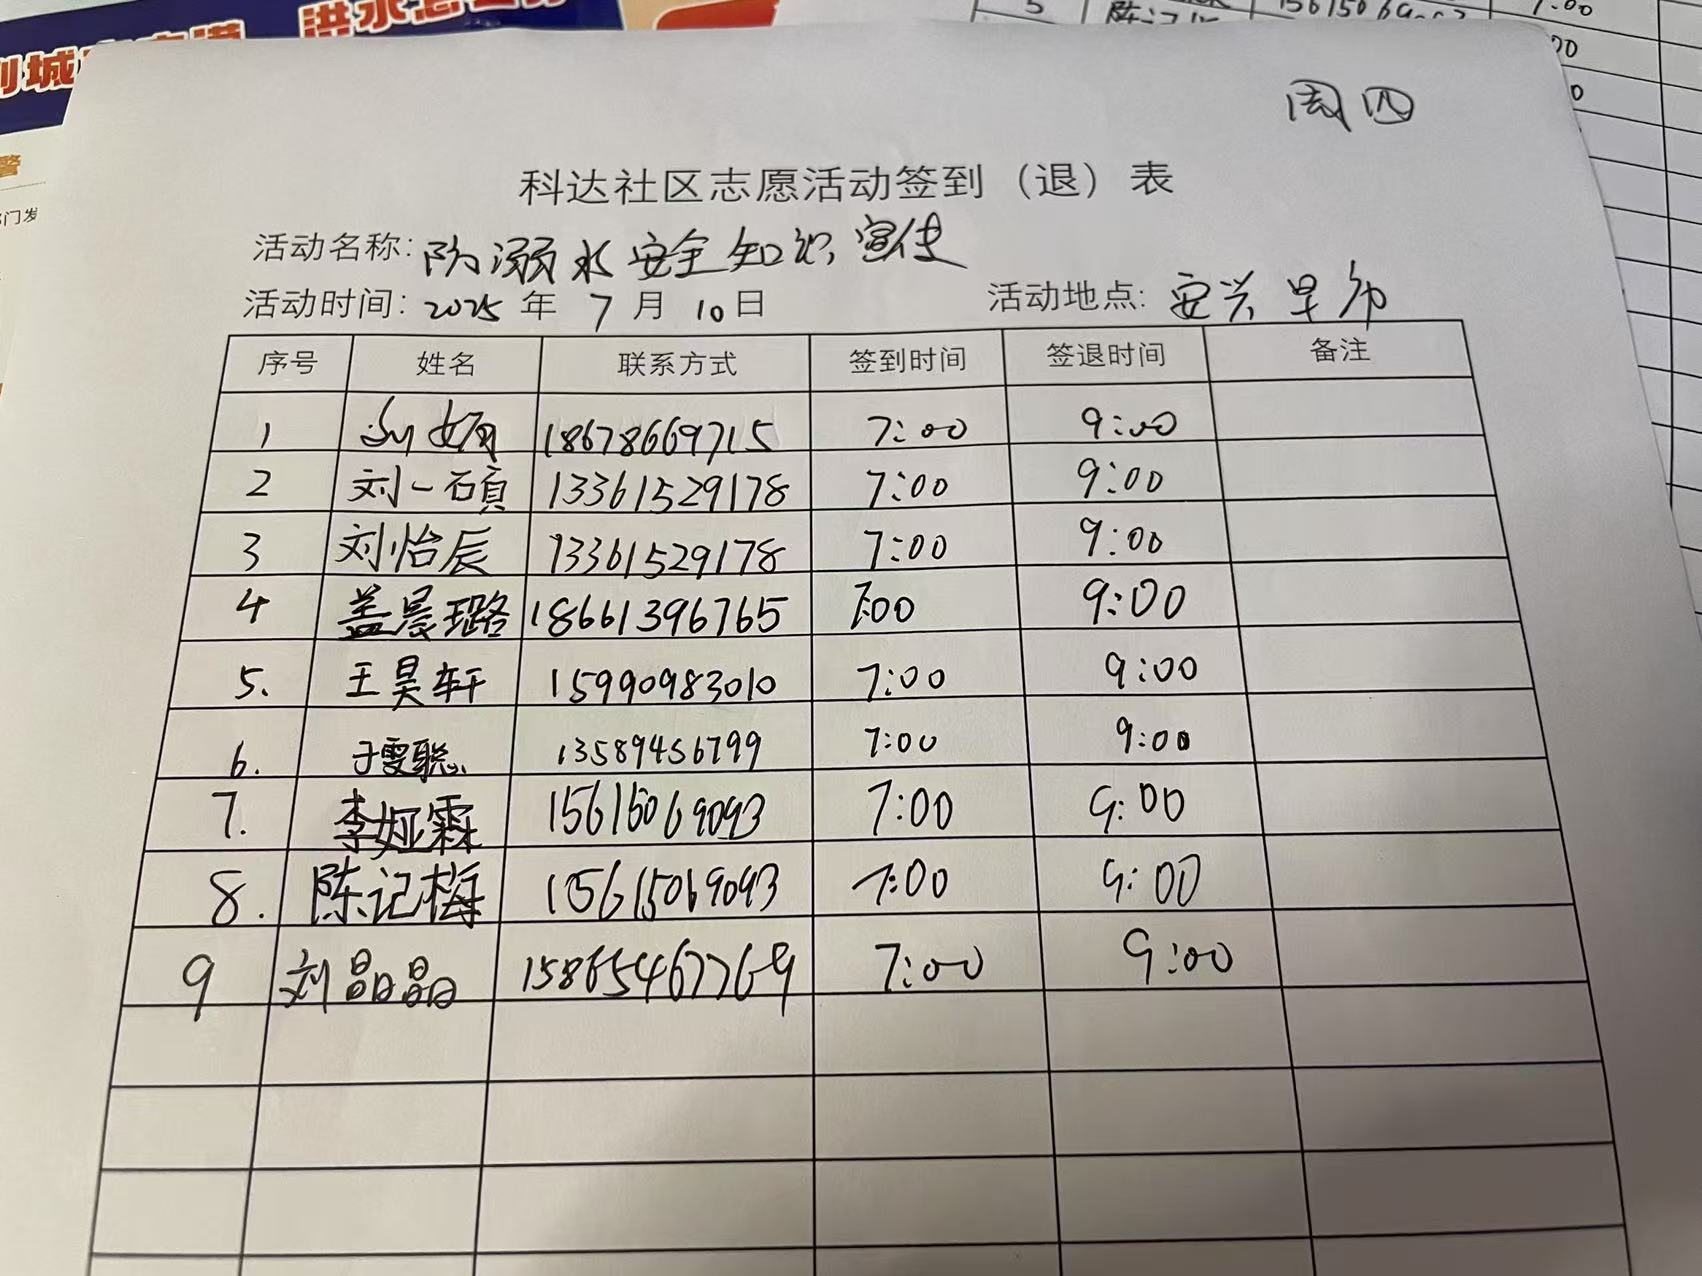 洪水
列城
警
部门发
5 陈记 7:00
00
0
周四
科达社区志愿活动签到（退）表
活动名称: 防溺水安全知识宣传
活动时间: 2025 年 7 月 10 日 活动地点: 安兴早市
序号 姓名 联系方式 签到时间 签退时间 备注
1 刘女雨 18678669715 7:00 9:00
2 刘一碩 13361529178 7:00 9:00
3 刘怡辰 13361529178 7:00 9:00
4 盖晨璐 18661396765 7:00 9:00
5. 王昊轩 15990983010 7:00 9:00
6. 于雯聪 13589456799 7:00 9:00
7. 李娅霖 15615069093 7:00 9:00
8. 陈记梅 15615069093 7:00 9:00
9 刘晶晶 15865467769 7:00 9:00